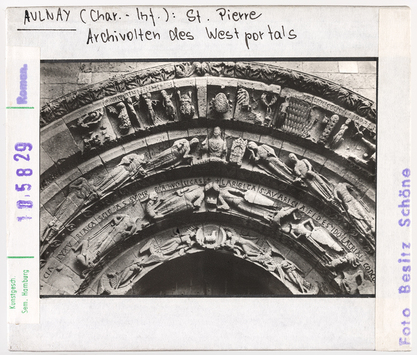 AULNAY (Char.-Inf.): St. Pierre
Archivolten des Westportals
Roman.
10.5829
Kunstgesch.
Sem. Hamburg
Foto Besitz Schöne